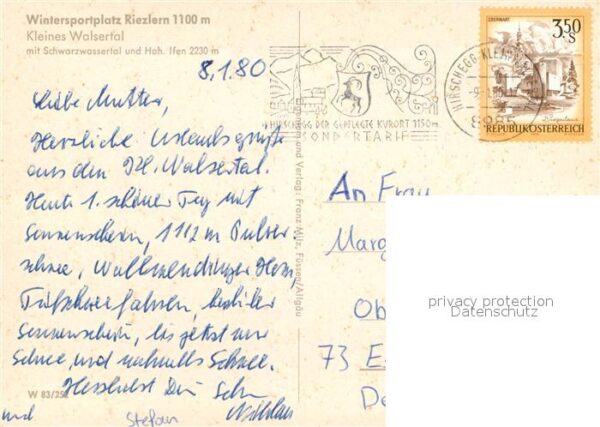 Wintersportplatz Riezlern 1100 m
Kleines Walsertal
mit Schwarzwassertal und Hoh. Ifen 2230 m
8.1.80
Liebe Mutter,
Herzliche Urlaubsgrüße
aus dem Kl. Walsertal.
Heute 1. schöner Tag mit
Sonnenschein, 1 1/2 m Pulver
schnee, Walmendinger Horn,
Tiefschneefahren, herrlicher
Sonnenschein, bis jetzt nur
Schnee und nochmals Schnee.
Herzlichst Dein Sohn
und Stefan
W 83/252
Eigentum und Verlag: Franz Milz, Füssen/Allgäu
HIRSCHEGG DER GEPFLEGTE KURORT 1150m
SONDERTARIF
HIRSCHEGG-KLEINW
8985
3.50
S
OBERWART
Burgenland
REPUBLIK ÖSTERREICH
An Frau
Marg
Ob
73 E
De
privacy protection
Datenschutz